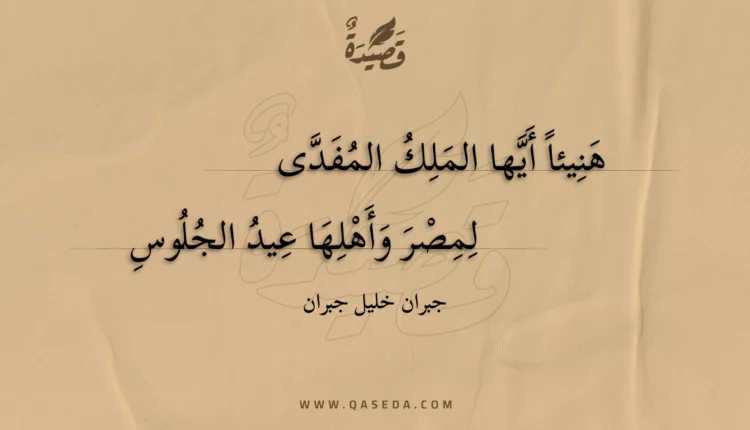 قَصِيْدَةٌ
هَنِيئاً أَيَّها المَلِكُ المُفَدَّى
لِمِصْرَ وَأَهْلِهَا عِيدُ الجُلُوسِ
جبران خليل جبران
WWW.QASEDA.COM